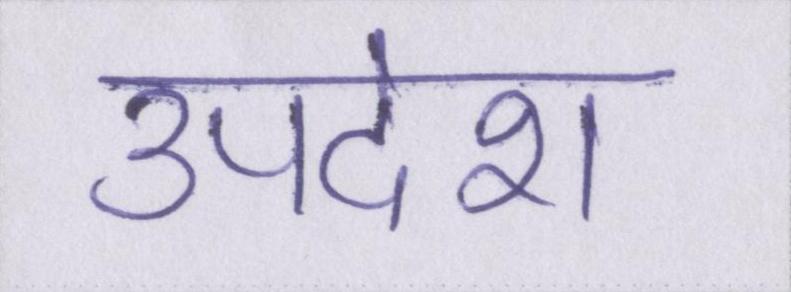 उपदेश